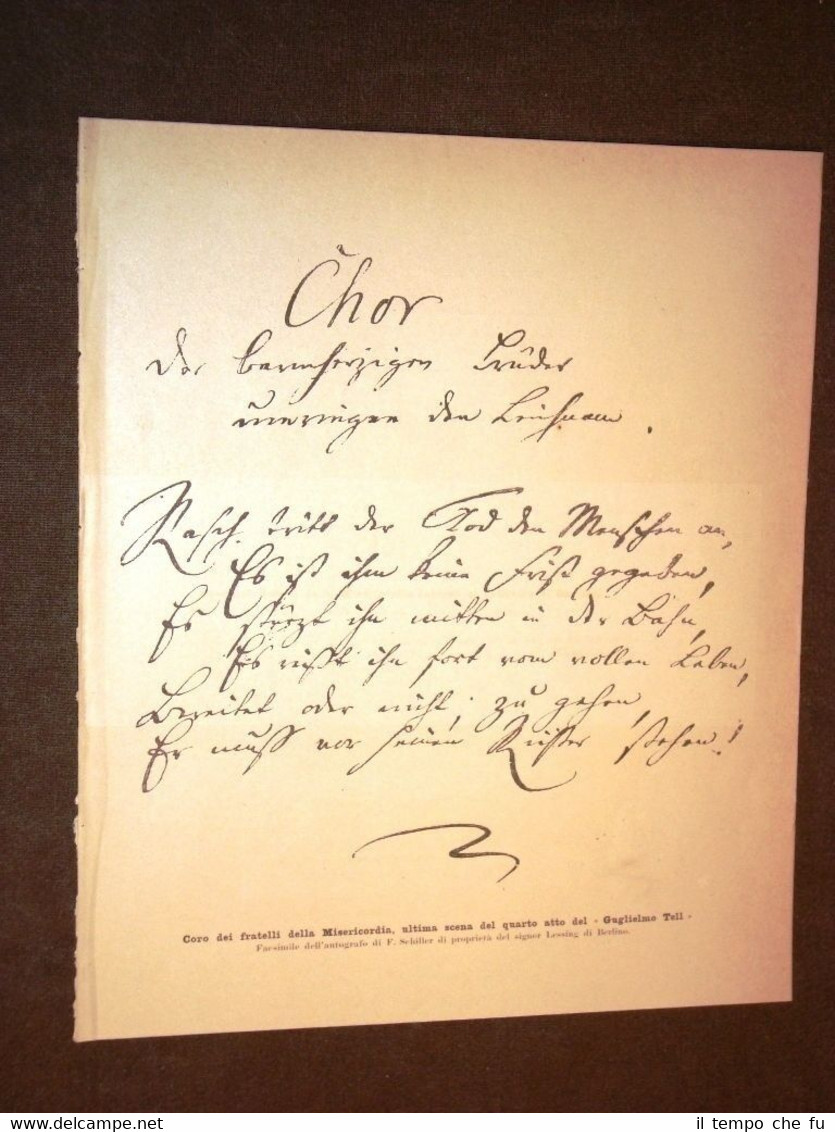 Chor
der barmherzigen Brüder
umringen den Leichnam.
Rasch tritt der Tod den Menschen an,
Es ist ihm keine Frist gegeben,
Es stürzt ihn mitten in der Bahn,
Es reißt ihn fort vom vollen Leben,
Bereitet oder nicht, zu gehen,
Er muss vor seinen Richter stehen!
Coro dei fratelli della Misericordia, ultima scena del quarto atto del « Guglielmo Tell »
Facsimile dell'autografo di F. Schiller di proprietà del signor Lessing di Berlino.
il tempo che fu